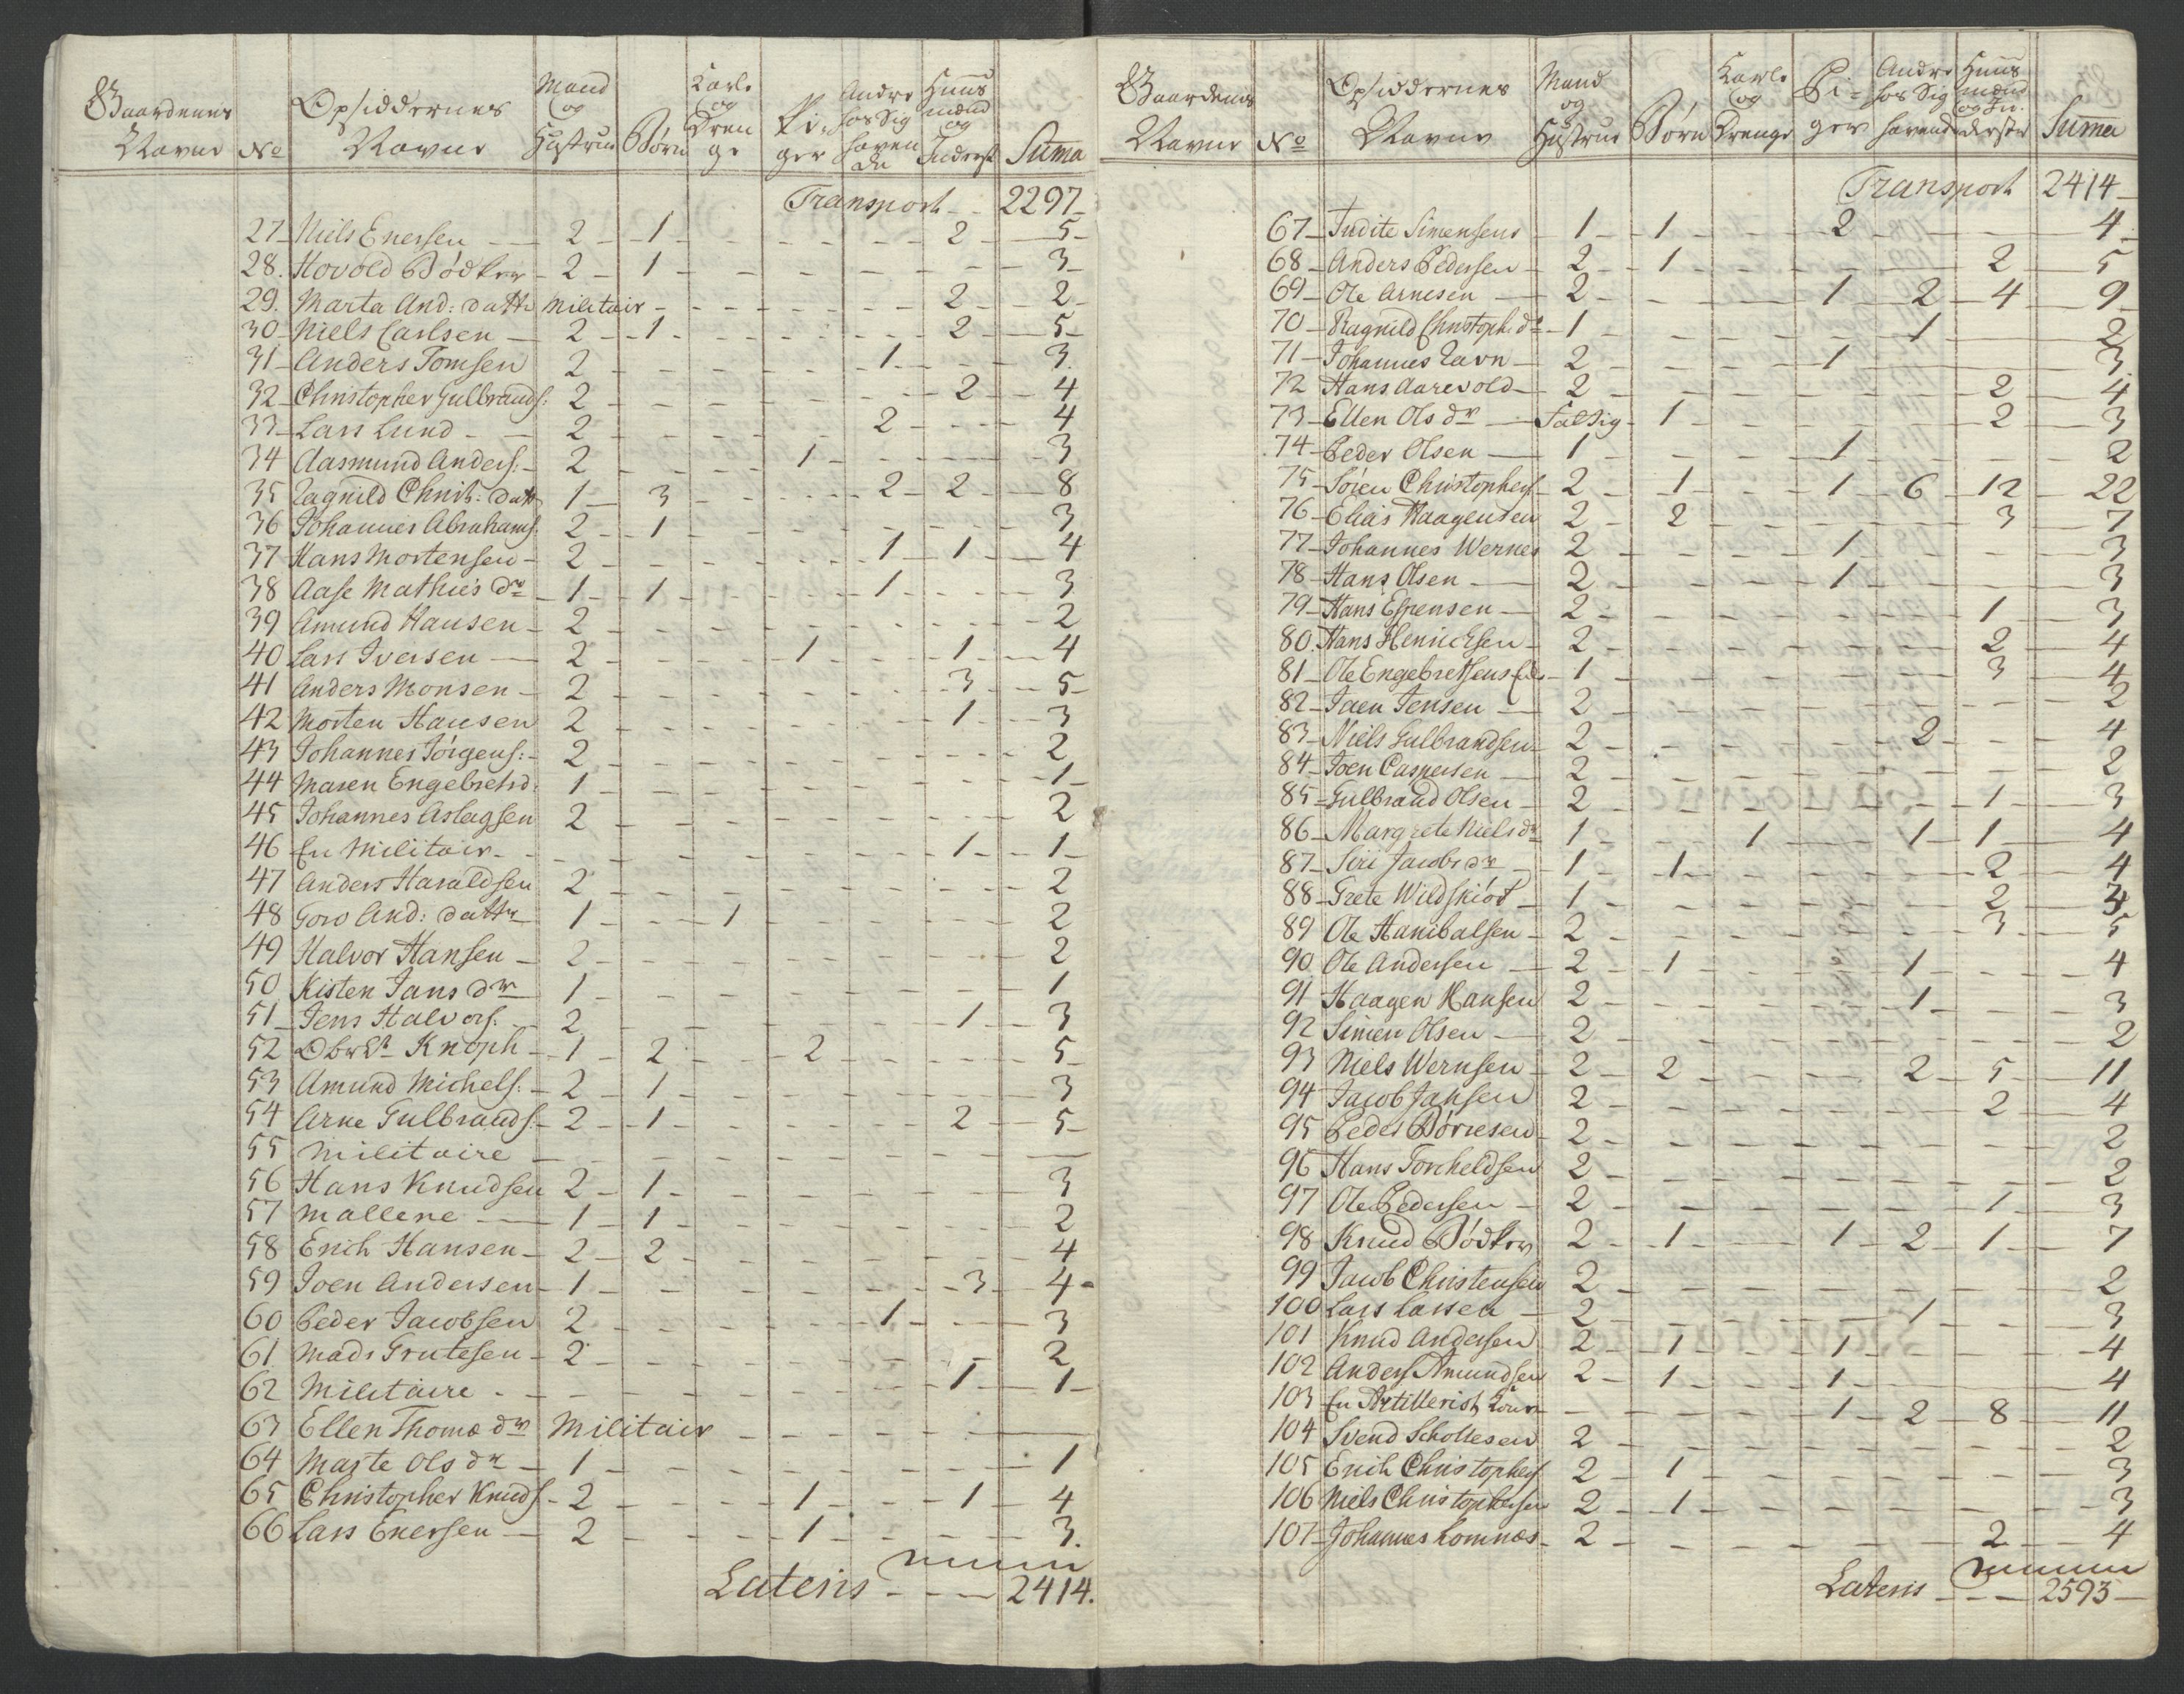 Gaardenes Navne	No	Opsiddernes Navne	Mand og Hustrue	Børn	Karle og Drenge	Piger	Andre hos Sig havende	Huusmænd og Inderst	Suma
Transport - - 2297
27 Niels Enersen - 2 - 1 - - - - 2 - 5
28. Hovold Bødker - 2 - 1 - - - - - 3
29. Marta And: datt. Militair - - - - - 2 - 2
30 Niels Carlsen - 2 - 1 - - - - 2 - 5
31 Anders Tomsen 2 - - - - 1 - - 3
32 Christopher Gulbrands: 2 - - - - - 2 - 4
33 Lars Lund - 2 - - - - 2 - - 4
34 Aasmund Anders: - 2 - - - 1 - - - 3
35 Ragnild Christ: datt 1 - 3 - - - 2 - 2 - 8
36 Johannes Abrahams: 2 - 1 - - - - - 3
37 Hans Mortensen - 2 - - - - 1 - 1 - 4
38 Aase Mathies dr - 1 - 1 - - - 1 - - 3
39 Amund Hansen - 2 - - - - - - 2
40 Lars Iversen - 2 - - - 1 - - 1 - 4
41 Anders Monsen - 2 - - - - - 3 - 5
42 Morten Hansen 2 - - - - - 1 - 3
43 Johannes Jørgens: - 2 - - - - - - 2
44 Maren Engebretsd: 1 - - - - - - 1
45 Johannes Aslagsen 2 - - - - - - 2
46 En Militair - - - - - - - 1 - 1
47 Anders Haraldsen 2 - - - - - - 2
48 Goro And: dattr 1 - - 1 - - - - 2
49 Halvor Hansen - 2 - - - - - - 2
50 Kisten Jans dr 1 - - - - - - 1
51 Jens Halvors: - 2 - - - - - 1 - 3
52 Knoph - 1 - 2 - - 2 - - - 5
53 Amund Michels: - 2 - 1 - - - - - 3
54 Arne Gulbrands: - 2 - 1 - - - - 2 - 5
55 Militaire - - - - - - -
56 Hans Knudsen 2 - 1 - - - - - 3
57 Mallene - 1 - 1 - - - - - 2
58 Erich Hansen - 2 - 2 - - - - - 4
59 Joen Andersen - 1 - - - - - 3 - 4
60 Peder Jacobsen 2 - - - - 1 - - 3
61 Mads Grutesen - 2 - - - - - - 2
62 Militaire - - - - - - - 1 - 1
63 Ellen Thomæ dr Militair - - - - -
64 Marte Ols dr - 1 - - - - - - 1
65 Christopher Knuds - 2 - - - 1 - - 1 - 4
66 Lars Enersen - 2 - - - 1 - - - 3.
Lateris - - - 2414.
Gaardenes Navne	No	Opsiddernes Navne	Mand og Hustrue	Børn	Karle og Drenge	Piger	Andre hos Sig havende	Huusmænd og Inderster	Suma
Transport 2414
67 Judite Simensens - 1 - 1 - - 2 - - - 4
68 Anders Pedersen - 2 - 1 - - - - 2 - 5
69 Ole Arnesen - 2 - - - 1 - 2 - 4 - 9
70 Ragnild Christoph: dr - 1 - - - - 1 - - 2
71 Johannes Ravn - 2 - - - 1 - - - 3
72 Hans Aarevold - 2 - - - - - 2 - 4
73 Ellen Ols dr - Faltsig - 1 - - - - 2 - 3
74 Peder Olsen - 1 - - - 1 - - - 2
75 Sören Christophers 2 - 1 - - 1 - 6 - 12 - 22
76 Elias Haagensen 2 - 2 - - - - 3 - 7
77 Johannes Wernes 2 - - - 1 - - - 3
78 Hans Olsen - 2 - - - 1 - - - 3
79 Hans Espensen - 2 - - - - - 1 - 3
80. Hans Henrichsen - 2 - - - - - 2 - 4
81 Ole Engebretsens - 1 - - - - - 3 - 4
82 Joen Jensen - 2 - - - - - - 2
83 Niels Gulbrandsen - 2 - - - - 2 - - 4
84 Joen Caspersen - 2 - - - - - - 2
85 Gulbrand Olsen - 2 - - - - - 1 - 3
86 Margrete Niels dr 1 - - 1 - - 1 - 1 - 4
87 Siri Jacobs dr - 1 - 1 - - - - 2 - 4
88 Grete Wildskiöt - 1 - - - - - 2 - 3
89 Ole Hanibalsen - 2 - - - - - 3 - 5
90 Ole Andersen - 2 - 1 - - - 1 - - 4
91 Haagen Hansen 2 - - - - 1 - - 3
92 Simen Olsen - 2 - - - - - - 2
93 Niels Wernsen - 2 - 2 - - - 2 - 5 - 11
94 Jacob Jansen 2 - - - - - 2 - 4
95 Peder Börresen 2 - - - - - - 2
96 Hans Torcheldsen 2 - - - - - - 2
97 Ole Pedersen - 2 - - - - - 1 - 3
98 Knud Bødker 2 - 1 - - 1 - 2 - 1 - 7
99 Jacob Christensen 2 - - - - - - 2
100 Lars Larsen - 2 - - - - 1 - - 3
101 Knud Andersen 2 - 1 - - 1 - - - 4
102 Anders Amundsen 2 - 1 - - 1 - - - 4
103 En Artillerist - - - - 1 - 2 - 8 - 11
104 Svend Scholtesen 2 - - - - - - 2
105 Erich Christophers 2 - 1 - - - - - 3
106 Niels Christophersen 2 - 1 - - - - - 3
107 Johannes Lomnæs - 2 - - - - - 2 - 4
Lateris - - - 2593